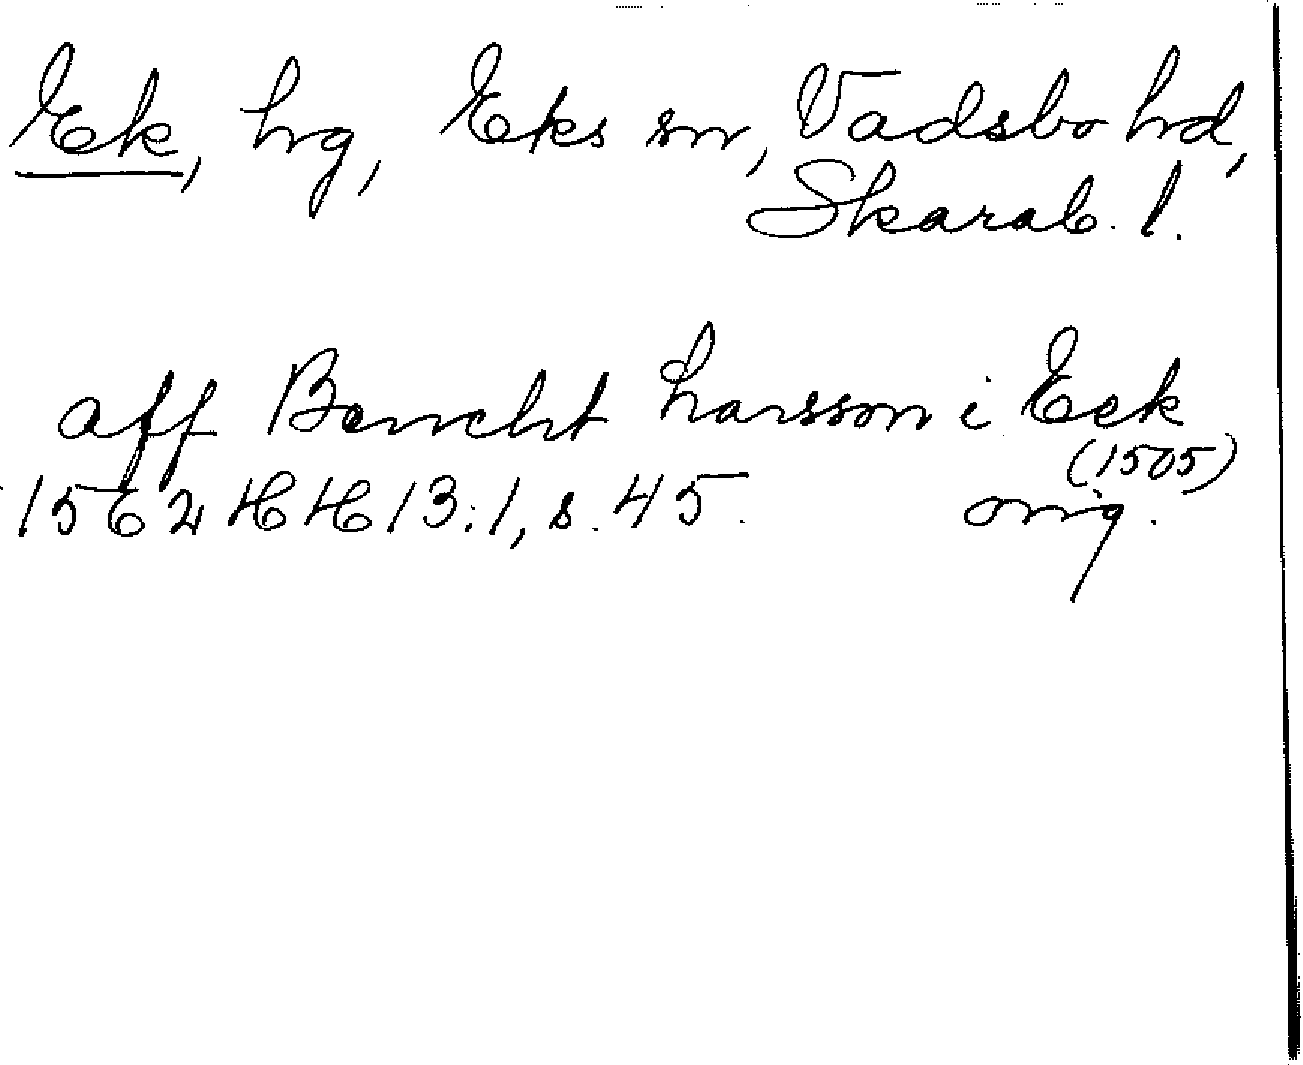 Ek, hg, Eks sn, Vadsbo hd,
Skarab. l.
aff Bencht Larsson i Eck
(1505)
1562 HH 13:1, s. 45. orig.